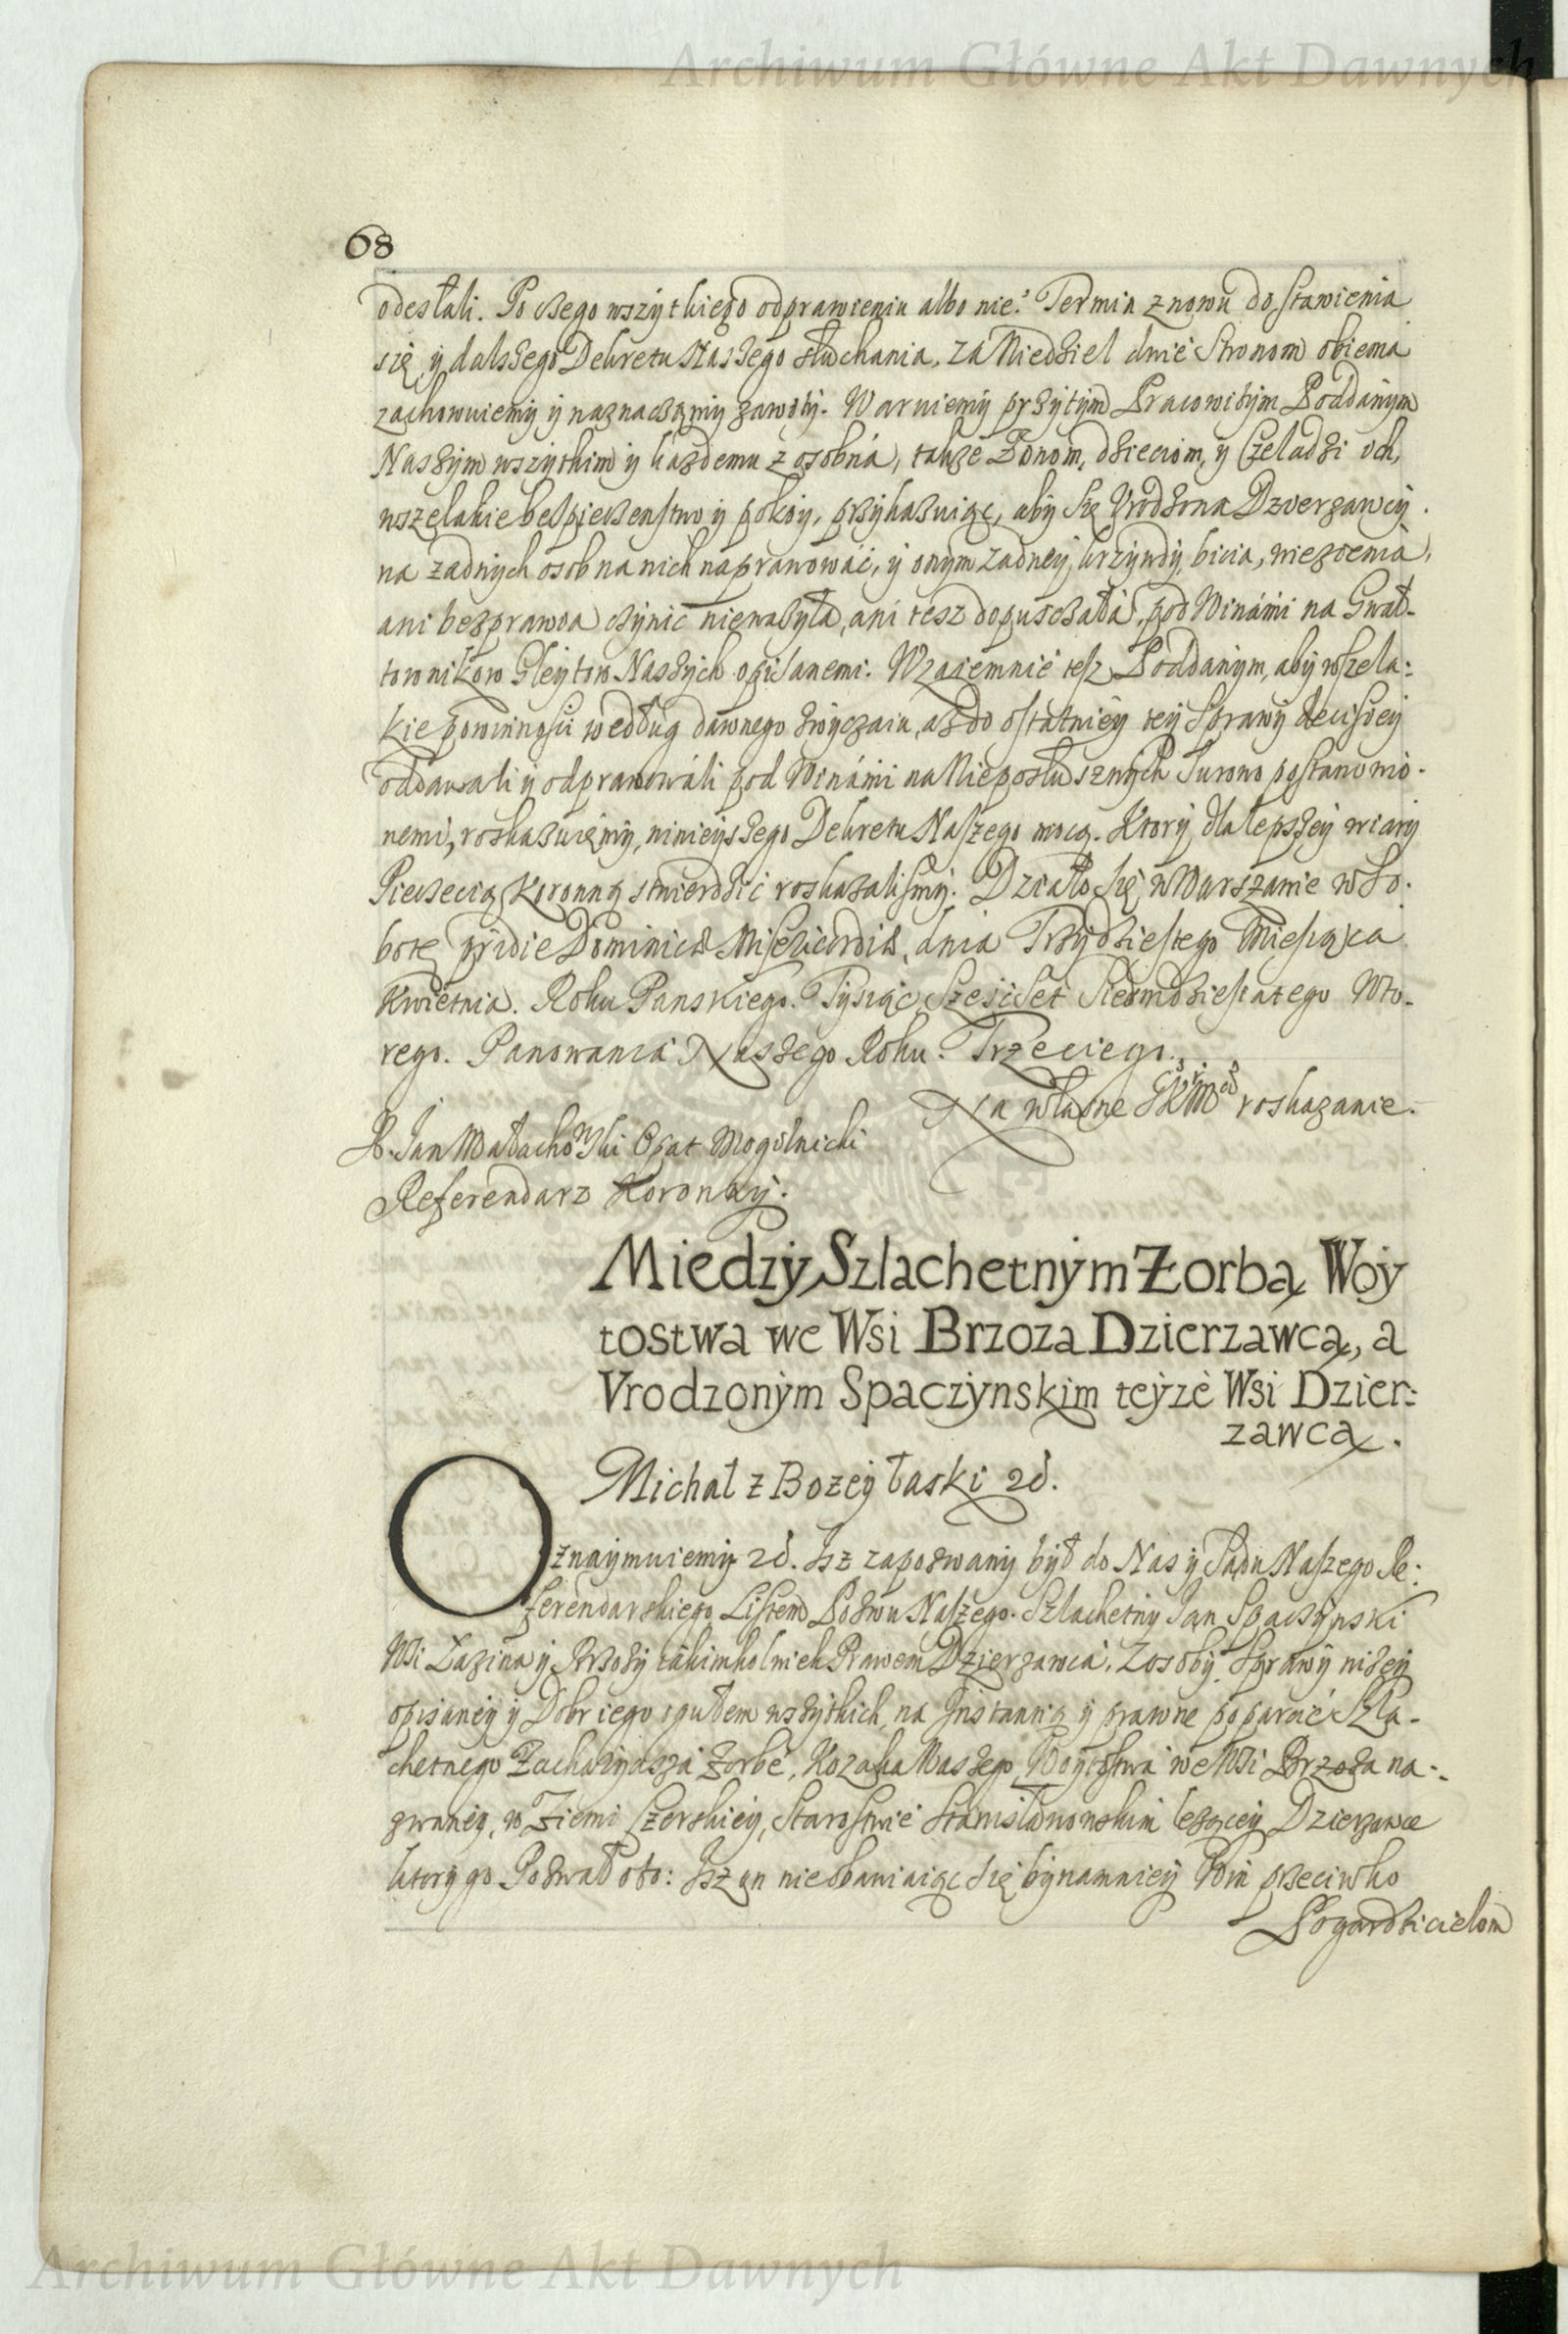 Archiwum Główne Akt Dawnych
68
odesłali. Po czego wszytkiego odprawieniu albo nie. Termin znowu do stawienia
się y dalszego Dekretu Naszego słuchania, za Niedziel dwie Stronom obiema
zachowuiemy y naznaczamy zawity. Waruiemy przytym Pracowitym Poddanym
Naszym wszytkim y każdemu z osobna, także Żonom, dzieciom, y Czeladzi ich,
wszelakie bespieczenstwo y pokoy, przykazuiąc, aby się Vrodzona Dzierzawcy
na żadnych osob na nich naprawować, y onym żadney krzywdy, bicia, więzienia,
ani bezprawia czynić nieważyła, ani tesz dopuszczała, pod Winami na Gwał-
townikow Gleytow Naszych opisanemi. Wzaiemnie tesz Poddanym, aby wszela:
kie powinnosci według dawnego zwyczaiu, aż do ostatniey tey Sprawy decisiey
oddawali y odprawowali pod Winami na Nieposłusznych Surowo postanowio-
nemi, roskazuięmy, ninieyszego Dekretu Naszego mocą. Ktory dla lepszey wiary
Pieczecią Koronną stwierdzić roskazalismy. Działo się w Warszawie w So-
botę pridie Dominicæ Misericordiæ, dnia Trzydziestego Miesiąca
Kwietnia. Roku Panskiego. Tysiąc Szescset Siedmdziesiatego Wto-
rego. Panowania Naszego Roku. Trzeciego.
Na własne JKMci roskazanie.
X. Jan Małachowski Opat Mogilnicki
Referendarz Koronny.
Miedzy Szlachetnym Żorbą Woy
tostwa we Wsi Brzoza Dzierzawcą, a
Vrodzonym Spaczynskim teyże Wsi Dzier:
zawcą.
Michał z Bozey łaski 2d.
Oznaymuiemy 2d. Isz zapozwany był do Nas y Sądu Naszego Re:
ferendarskiego Listem Pozwu Naszego. Szlachetny Jan Spaczynski
Wsi Łazina y Brzozy iakimkolwiek Prawem Dzierzawca, z osoby, Sprawy niżey
opisaney y Dobr iego ogułem wszytkich, na Instantią y prawne poparcie Szla-
chetnego Zacharyasza Żorbe, Kozaka Naszego, Woytostwa we Wsi Brzoza na-
zwaney, w Ziemi Czerskiey, Starostwie Stanisławowskim leżącey Dzierzawce
ktory go Pozwał oto: Isz on nieobawiaiąc się bynamniey Win przeciwko
Pogardzicielom
Archiwum Główne Akt Dawnych